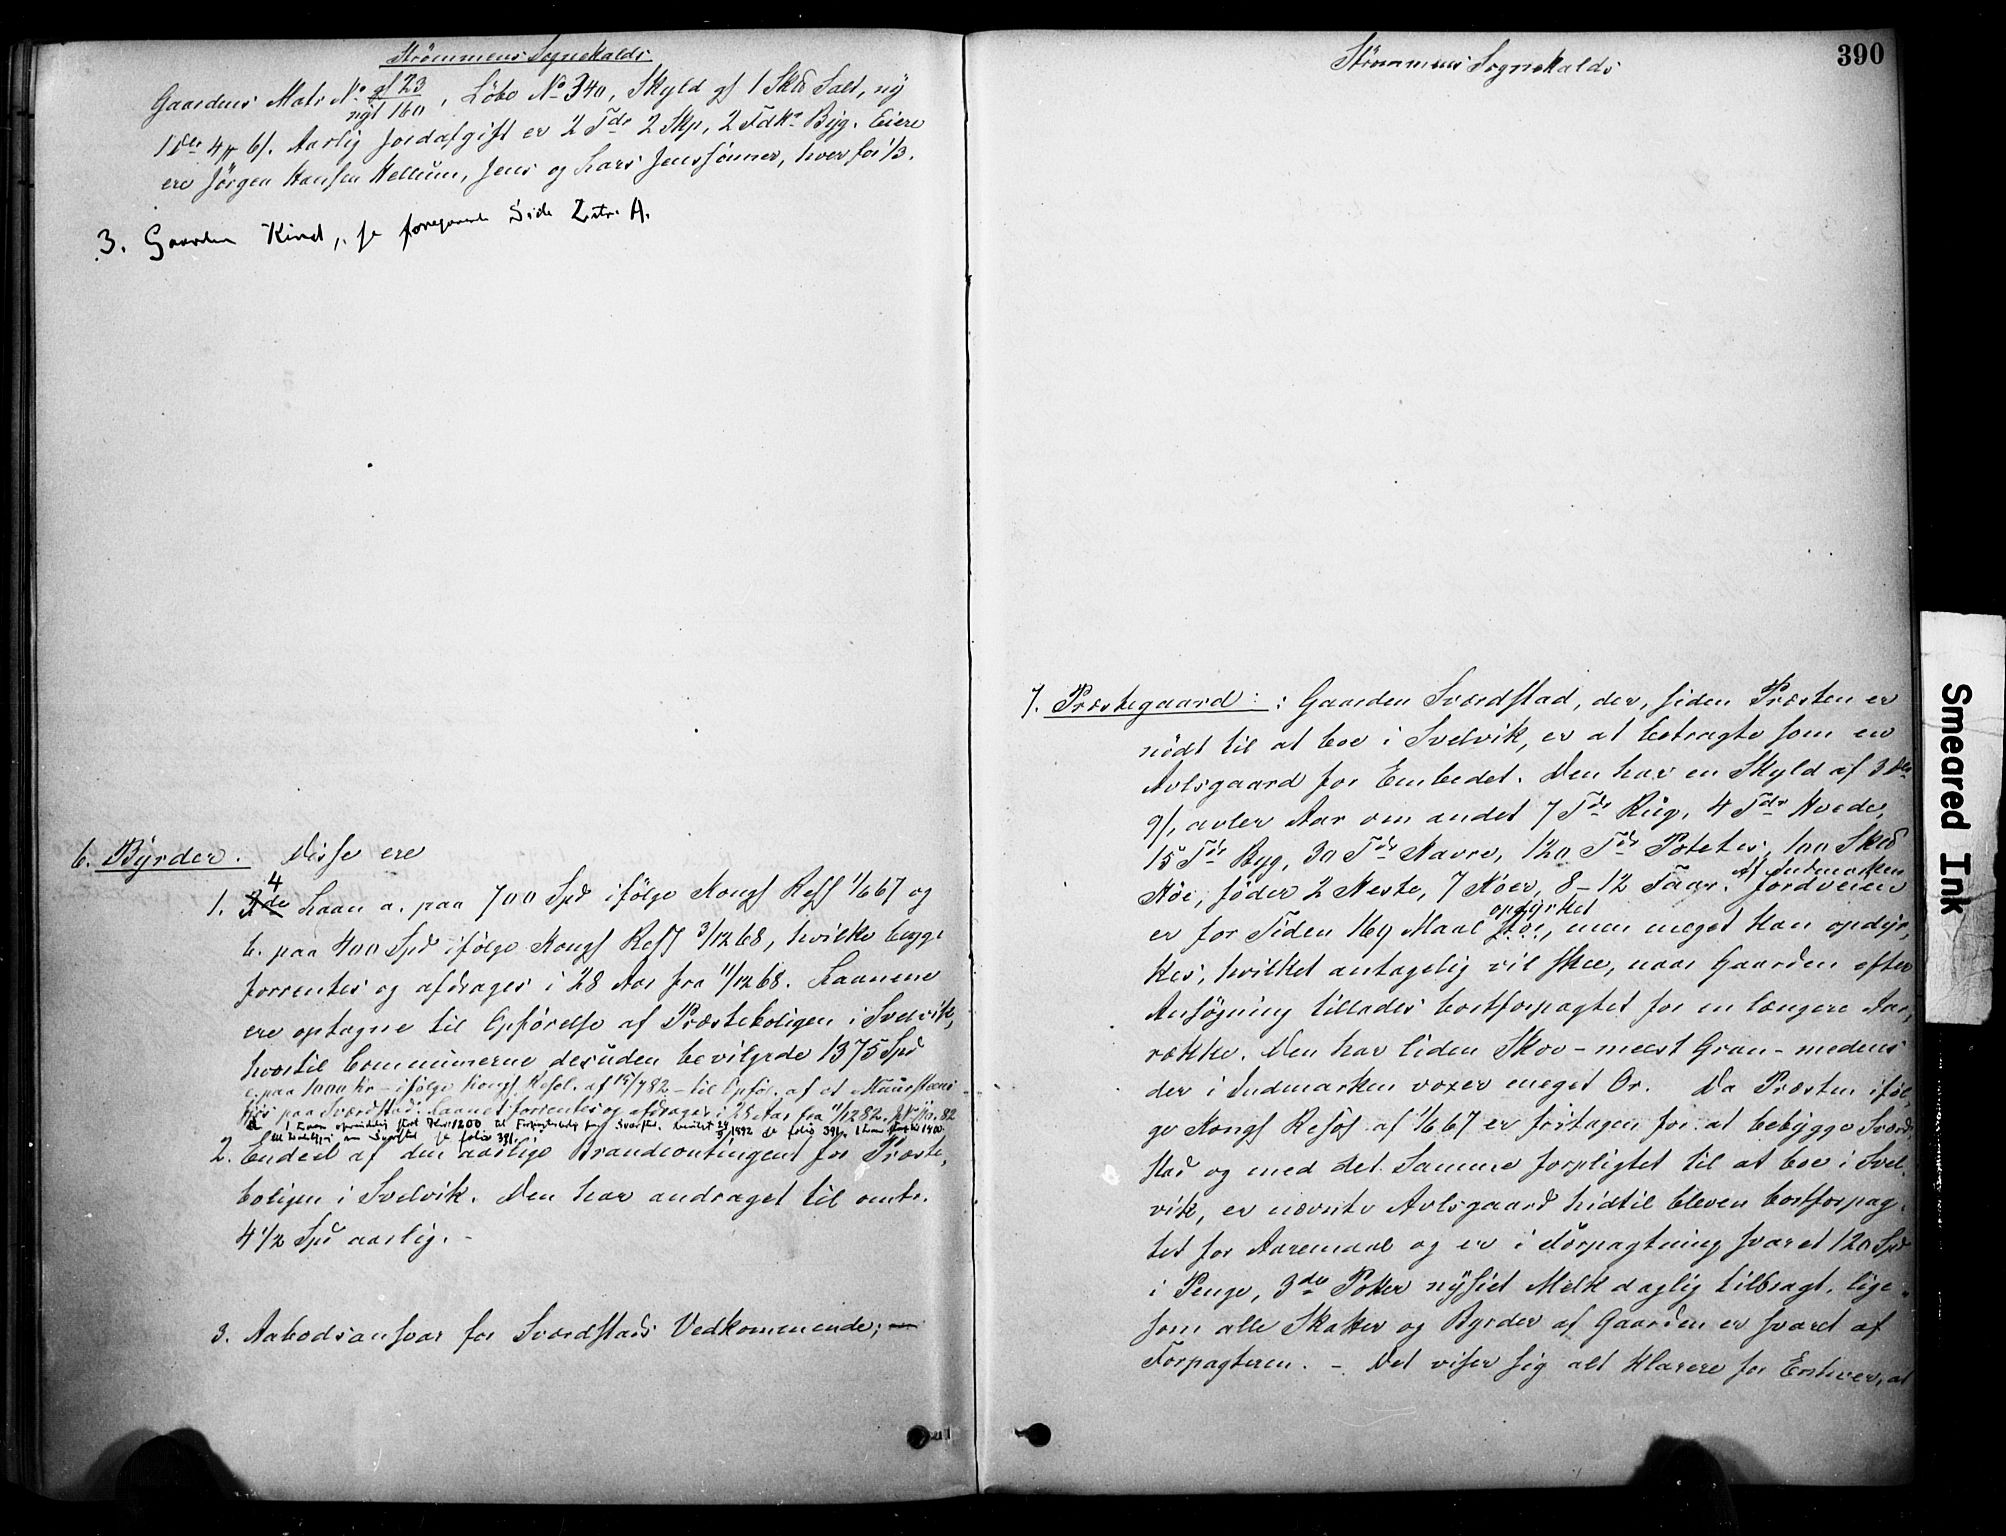 Strømmens Sognekalds
Gaardens Matr. No gl 23 / nyt 160, Löbe No 340, Skyld gl 1 Skd Salt, ny
1 Dlr 4 # 6 /. Aarlig Jordafgift er 2 Tdr 2 Skp, 2 Fdkr Byg. Eiere
ere Jörgen Hansen Hellum, Jens og Lars Jenssönner, hver for 1/3.
3. Gaarden Kind, se foregaaende Side Litr. A.
6. Byrder. Disse ere
1. 4 Laan a. paa 700 Spd ifölge Kongl Resl 1/6 67 og
b. paa 400 Spd ifölge Kongl Resl 3/12 68, hvilke begge
forrentes og afdrages i 28 Aar fra 11/12 68. Laanene
ere optagne til Opförelse af Præsteboligen i Svelvik,
hvortil Communerne desuden bevilgede 1375 Spd
c. paa 1000 Kr - ifölge Kongl. Resol. af 15/7 82 - til Opför. af et
paa Sværdstad. Laanet forrentes og afdrages i 28 Aar fra 11/12 82.
d 1 Laan oprindelig stort Kr 1200 til
se folio 391.
2. Endeel af den aarlige Brandcontingent for Præste-
boligen i Svelvik. Den har andraget til omtr.
4 1/2 Spd aarlig. -
3. Aabodsansvar for Sværdstads Vedkommende; -
Strømmens Sognekalds
390
7. Præstegaard: Gaarden Sværdstad, der, siden Præsten er
nödt til at boe i Svelvik, er at betragte som en
Avlsgaard for Embedet. Den har en Skyld af 3 Dlr
9 /, avler Aar om andet 7 Tdr Rug, 4 Tdr Hvede,
15 Tdr Byg, 30 Tdr Havre, 120 Tdr Poteter, 100 Skd
Höe, föder 2 Heste, 7 Köer, 8 - 12 Faar. Af Indmarken Jordveien
er for Tiden 169 Maal opdyrket, men meget kan opdyr-
kes, hvilket antagelig vil skee, naar Gaarden efter
Ansögning tillades bortforpagtet for en længere Aar-
række. Den har liden Skov - meest Gran - medens
der i Indmarken voxer meget Or. Da Præsten iföl-
ge Kongl Resol. af 1/6 67 er fritagen for at bebygge Sværd-
stad og med det Samme forpligtet til at boe i Svel-
vik, er nævnte Avlsgaard hidtil bleven bortforpag-
tet for Aaremaal og er i Forpagtning svaret 120 Spd
i Penge, 3de Potter nysiet Melk daglig tilbragt, lige-
som alle Skatter og Byrder af Gaarden er svaret af
Forpagteren. - Det viser sig alt klarere for Enhver, at
Smeared Ink